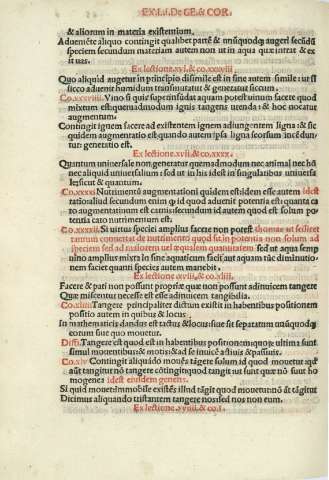 EX.LI.I.De GE.& COR.
& aliorum in materia existentium.
Adueniēte aliquo contingit qualibet partē & unūquodq; augeri secūdū
speciem secundum materiam autem non ut in aqua quæ intrat & ex
it uas.
Ex lectione.xvi.& co.xxxviii
Quo aliquid augetur in principio dissimile est in fine autem simile: ut si
sicco adueniat humidum transmutatur & generatur siccum.
Co.xxxviiii. Vino si quis superinfūdat aquam potest uinum facere quod
mixtum est: quemadmodum ignis tangens urenda: & hoc uocatur
augmentum.
Contingit ignem facere ad existentem ignem adiungentem ligna: & sic
quidem augmentatio est quando autem ipsa ligna seorsum incēdun-
tur: generatio est.
Ex lectione.xvii.& co.xxxx.
Quantum uniuersale non generatur quemadmodum nec animal nec hō
nec aliquid uniuersalium: sed ut in his idest in singularibus uniuersa
le sicut & quantum.
Co.xxxxi. Nutrimento augmentationi quidem est idem esse autem idest
ratio aliud secundum enim q̄ id quod aduenit potentia est quanta ca
ro augmentatiuum est carnis secundum id autem quod est solum po-
tentia caro nutrimentum est.
Co.xxxxii. Si uirtus speciei amplius facere non potest thomas ut scilicet
tantum conuertat de nutrimento quod sit in potentia non solum ad
speciem sed ad maiorem uel equalem quantitatem sed ut aqua semp
uino amplius mixta in fine aquaticum facit aut aquam tūc diminutio-
nem faciet quanti species autem manebit.
Ex lectione xviii.& co.xliii.
Facere & pati non possunt propriæ quæ non possunt adinuicem tangere
Quæ miscentur necesse est esse adinuicem tangibilia.
Co.xliiii. Tangere principaliter dictum existit in habentibus positionem
positio autem in quibus & locus.
In mathematicis dandus est tactus & locus siue sit separatum unūquodq;
eorum siue quo mouetur.
Diffi. Tangere est quod est in habentibus positionem quorum ultima sunt
simul mouentibus & motis & ad se inuicē actiuis & passiuis.
Co.xlv. Contingit aliquādo mouēs tāgere solum id quod mouetur aliqñ
aut tangitur nō tangere cōtingit quod tangit id sunt quæ nō sunt ho
mogenea idest eiusdem generis.
Si quid mouet īmobile existēs illud tāgit quod mouetur nō āt tāgitur
Dicimus aliquando tristantem tangere nos sed non nos eum.
Ex lectione.xviiii.& co.l.